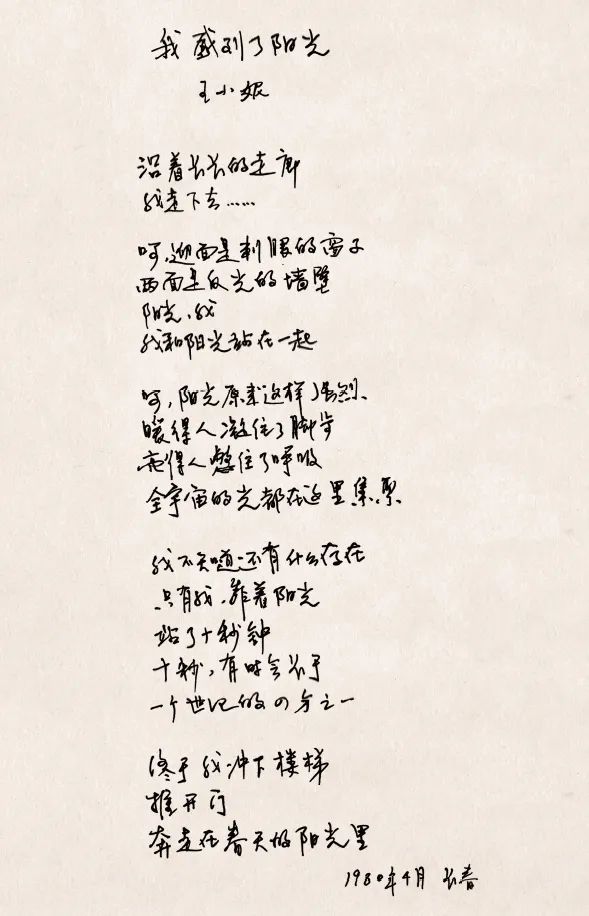 我感到了阳光
王小妮
沿着长长的走廊
我走下去……
呵,迎面是刺眼的窗子
两面是反光的墙壁
阳光,我
我和阳光站在一起
呵,阳光原来这样强烈
暖得人凝住了脚步
亮得人憋住了呼吸
全宇宙的光都在这里集聚
我不知道还有什么存在
只有我,靠着阳光
站了十秒钟
十秒,有时会长于
一个世纪的四分之一
终于我冲下楼梯
推开门
奔走在春天的阳光里
1980年4月 长春